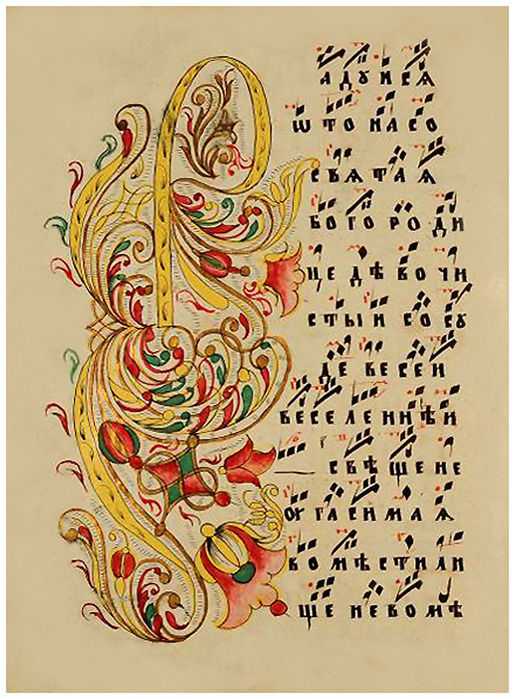 Радꙋисѧ
што насо
свѧтаѧ
богороди
це дѣвочи
стыи сосꙋ
де весеи
веселеннѣи
свѣщене
оугасимаѧ
вомѣстили
ще невомѣ